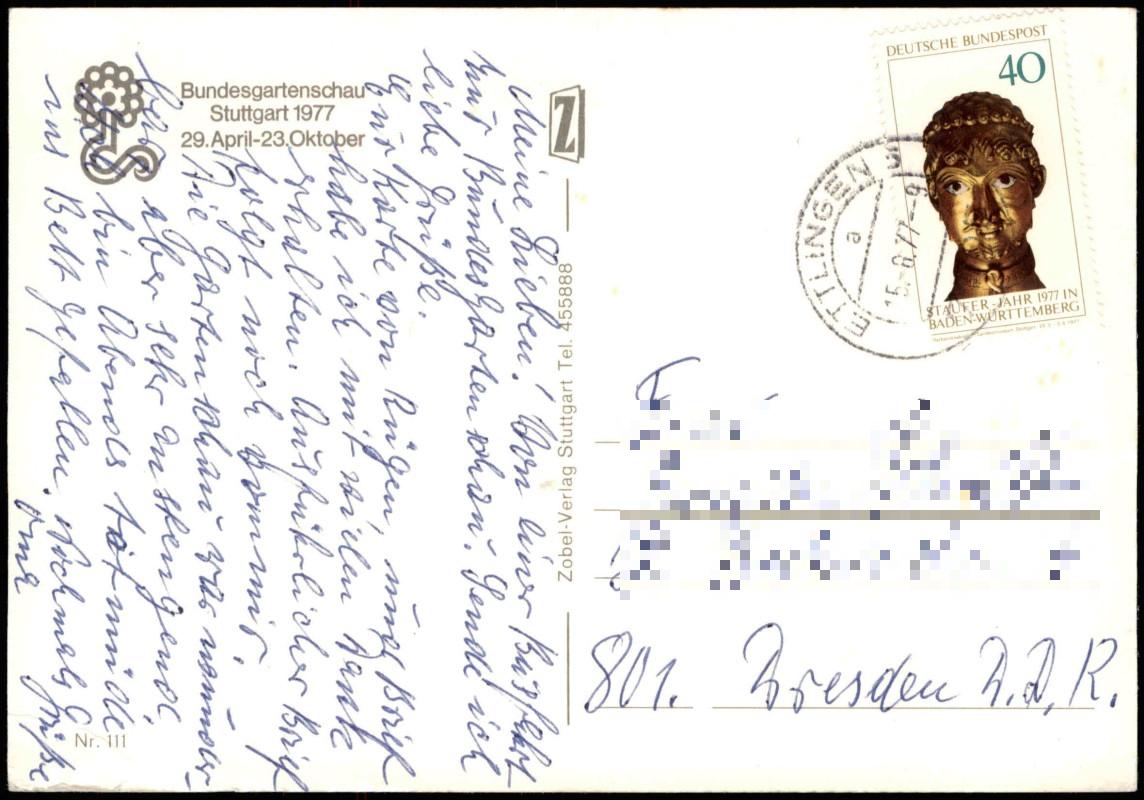 Bundesgartenschau
Stuttgart 1977
29. April-23. Oktober
Meine Lieben! Von einer Busfahrt
zur Bundesgartenschau. Sende ich
liebe Grüße.
Eure Karte von Rügen, und Brief
habe ich mit vielen Dank
erhalten. Ausführlicher Brief
folgt noch von mir.
Die Gartenschau war wunder-
bar aber sehr anstrengend.
bin Abends totmüde
ins Bett gefallen. Nochmals Grüße
Oma
Nr. 111
Z
Zobel-Verlag Stuttgart Tel. 455888
DEUTSCHE BUNDESPOST
40
STAUFER-JAHR 1977 IN
BADEN-WÜRTTEMBERG
ETTLINGEN
a
15.-6.77-9
801. Dresden D.D.R.